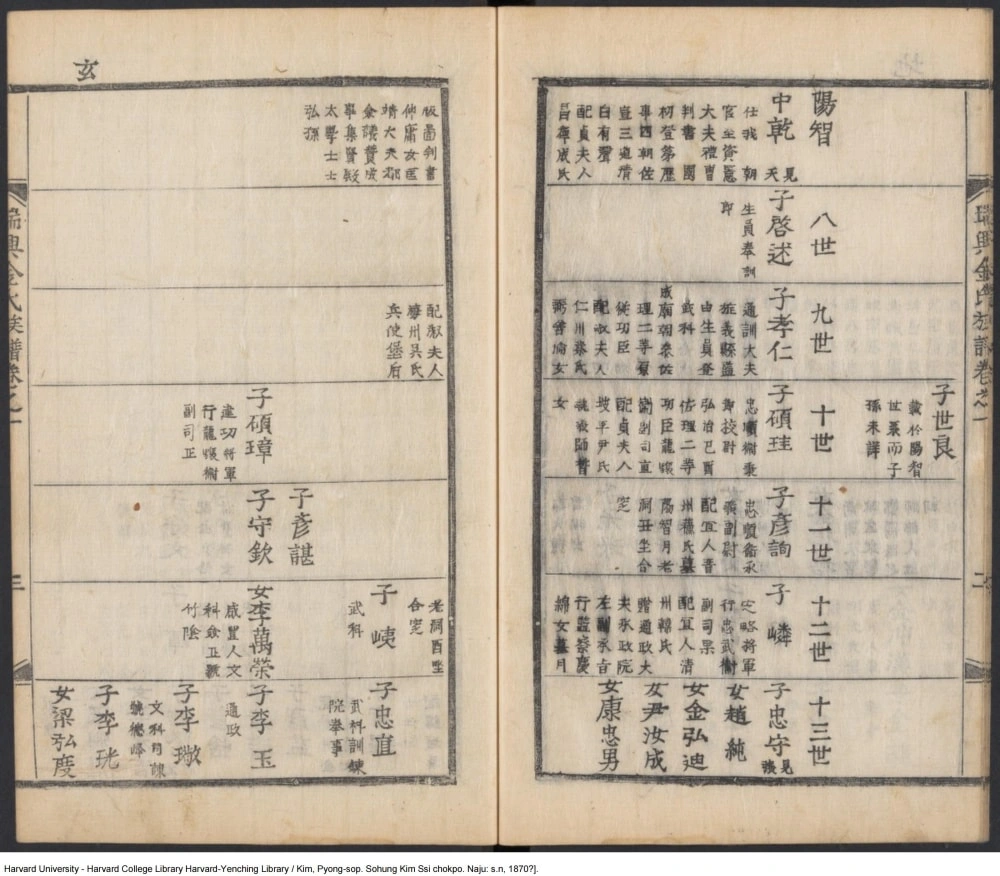 陽智
中乾
見
天
仕我朝
官至資憲
大夫禮曹
判書國
初登第歷
事四朝佐
豈三道淸
白有聲
配貞夫人
昌寧成氏
八世
子啓述
生員奉訓
郎
九世
子孝仁
通訓大夫
旌義縣監
由生員登
武科
成廟朝參佐
理二等原
從功臣
配淑夫人
仁川蔡氏
十世
子碩珪
忠順衛秉
節校尉
弘治己酉
佑理二等
功臣龍驤
衛副司直
配貞夫人
坡平尹氏
女
十一世
子彦詢
忠順衛承
義副尉
配宜人晋
州蘇氏墓
陽智月老
洞丑坐合
窆
十二世
子嶙
定略將軍
行忠武衛
副司果
配宜人淸
州韓氏
贈通政大
夫承政院
左副承旨
行監察慶
綿女墓月
十三世
子忠守
見
女趙純
女金弘迪
女尹汝成
女康忠男
子世良
載於陽智
世襲而子
孫未詳
瑞興金氏族譜卷之一
二
玄
版圖判書
仲庸女匡
靖大夫都
僉議贊成
事集賢殿
太學士士
弘孫
配淑夫人
廣州吳氏
兵使堡后
子碩璋
建功將軍
行龍驤衛
副司正
子彦諶
子守欽
老洞酉坐
合窆
子峓
武科
女李萬榮
咸豐人文
科僉正號
竹陰
子忠直
武科訓鍊
院奉事
子李玉
通政
子李璥
文科司諫
子李珖
女梁弘度
瑞興金氏族譜卷之一
三
Harvard University - Harvard College Library Harvard-Yenching Library / Kim, Pyong-sop. Sohung Kim Ssi chokpo. Naju: s.n, 1870?].